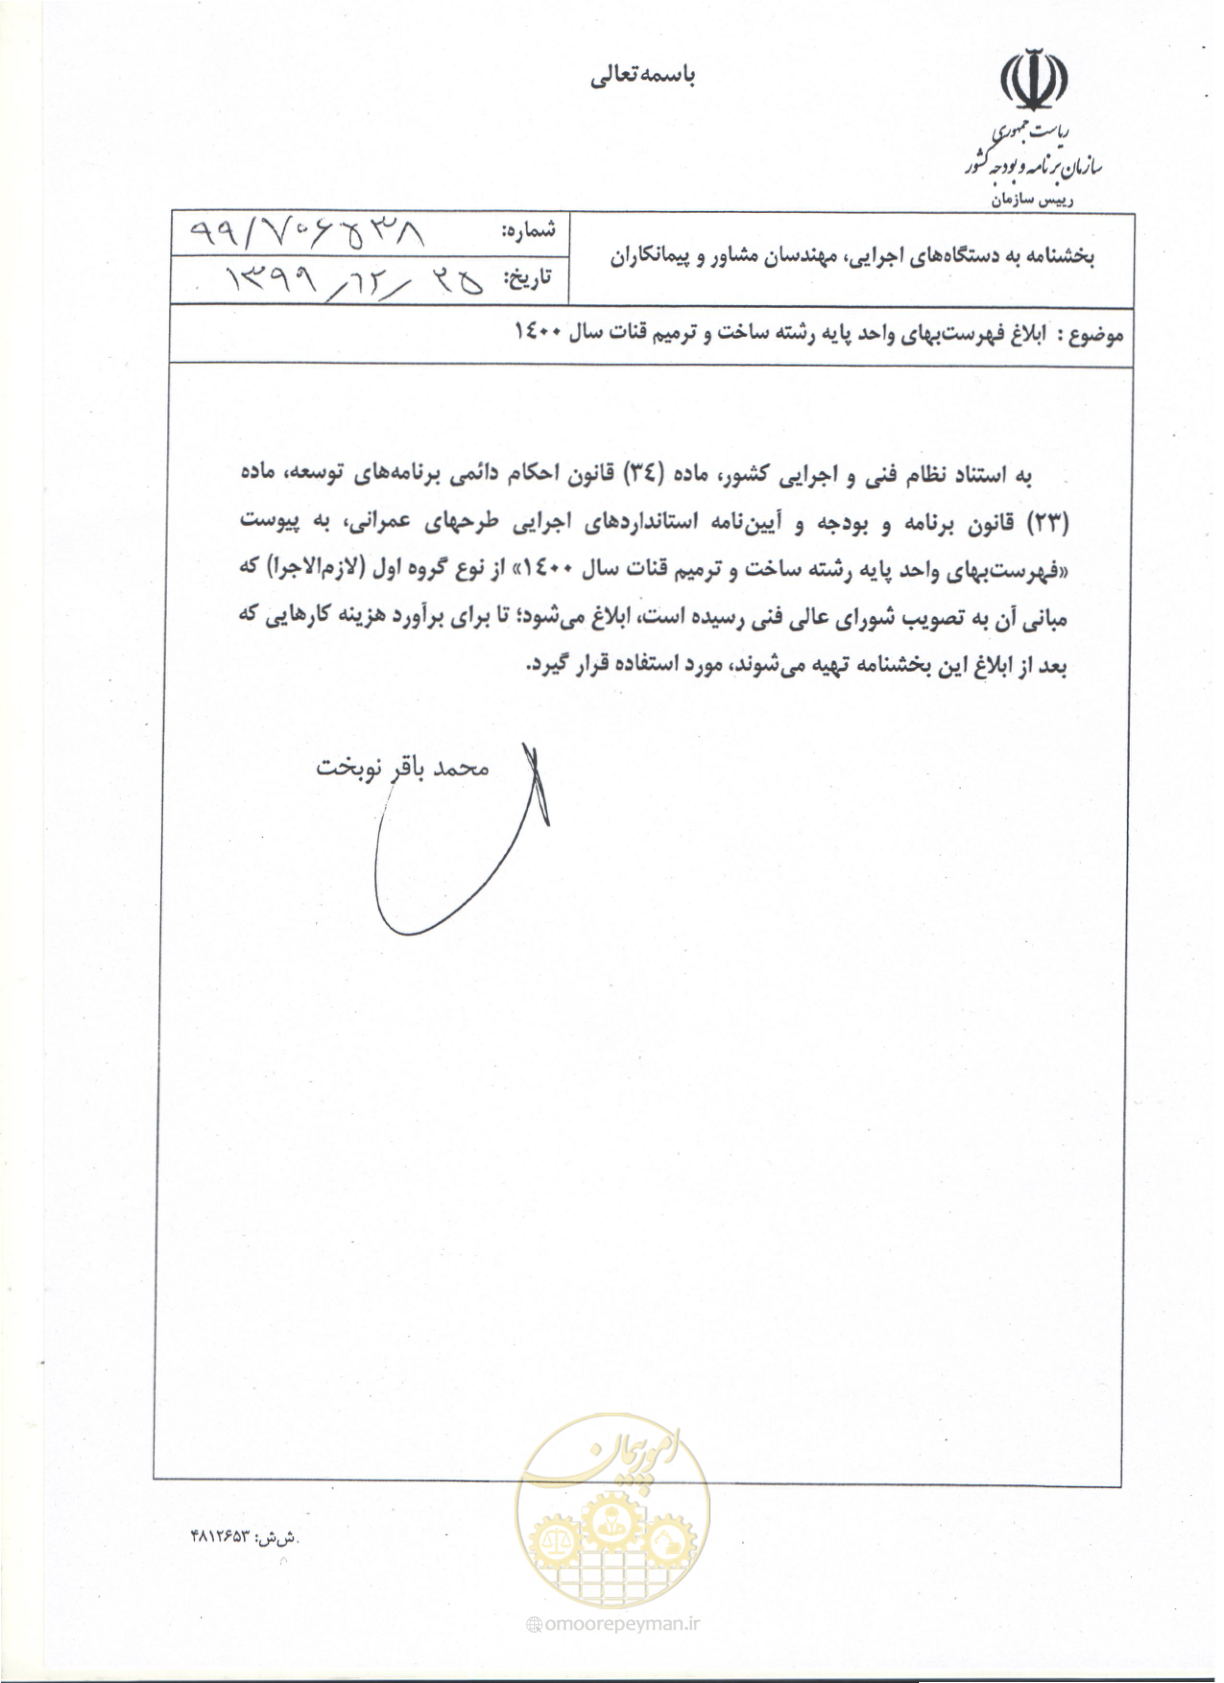 باسمه تعالی
ریاست جمهوری
سازمان برنامه و بودجه کشور
رییس سازمان
بخشنامه به دستگاه‌های اجرایی، مهندسان مشاور و پیمانکاران
شماره: ۹۹/۷۰۶۵۳۸
تاریخ: ۱۳۹۹/۱۲/۲۵
موضوع : ابلاغ فهرست‌بهای واحد پایه رشته ساخت و ترمیم قنات سال ۱٤۰۰
به استناد نظام فنی و اجرایی کشور، ماده (۳٤) قانون احکام دائمی برنامه‌های توسعه، ماده
(۲۳) قانون برنامه و بودجه و آیین‌نامه استانداردهای اجرایی طرحهای عمرانی، به پیوست
«فهرست‌بهای واحد پایه رشته ساخت و ترمیم قنات سال ۱٤۰۰» از نوع گروه اول (لازم‌الاجرا) که
مبانی آن به تصویب شورای عالی فنی رسیده است، ابلاغ می‌شود؛ تا برای برآورد هزینه کارهایی که
بعد از ابلاغ این بخشنامه تهیه می‌شوند، مورد استفاده قرار گیرد.
محمد باقر نوبخت
امور پیمان
ش‌ش: ۴۸۱۲۶۵۳
omoorepeyman.ir